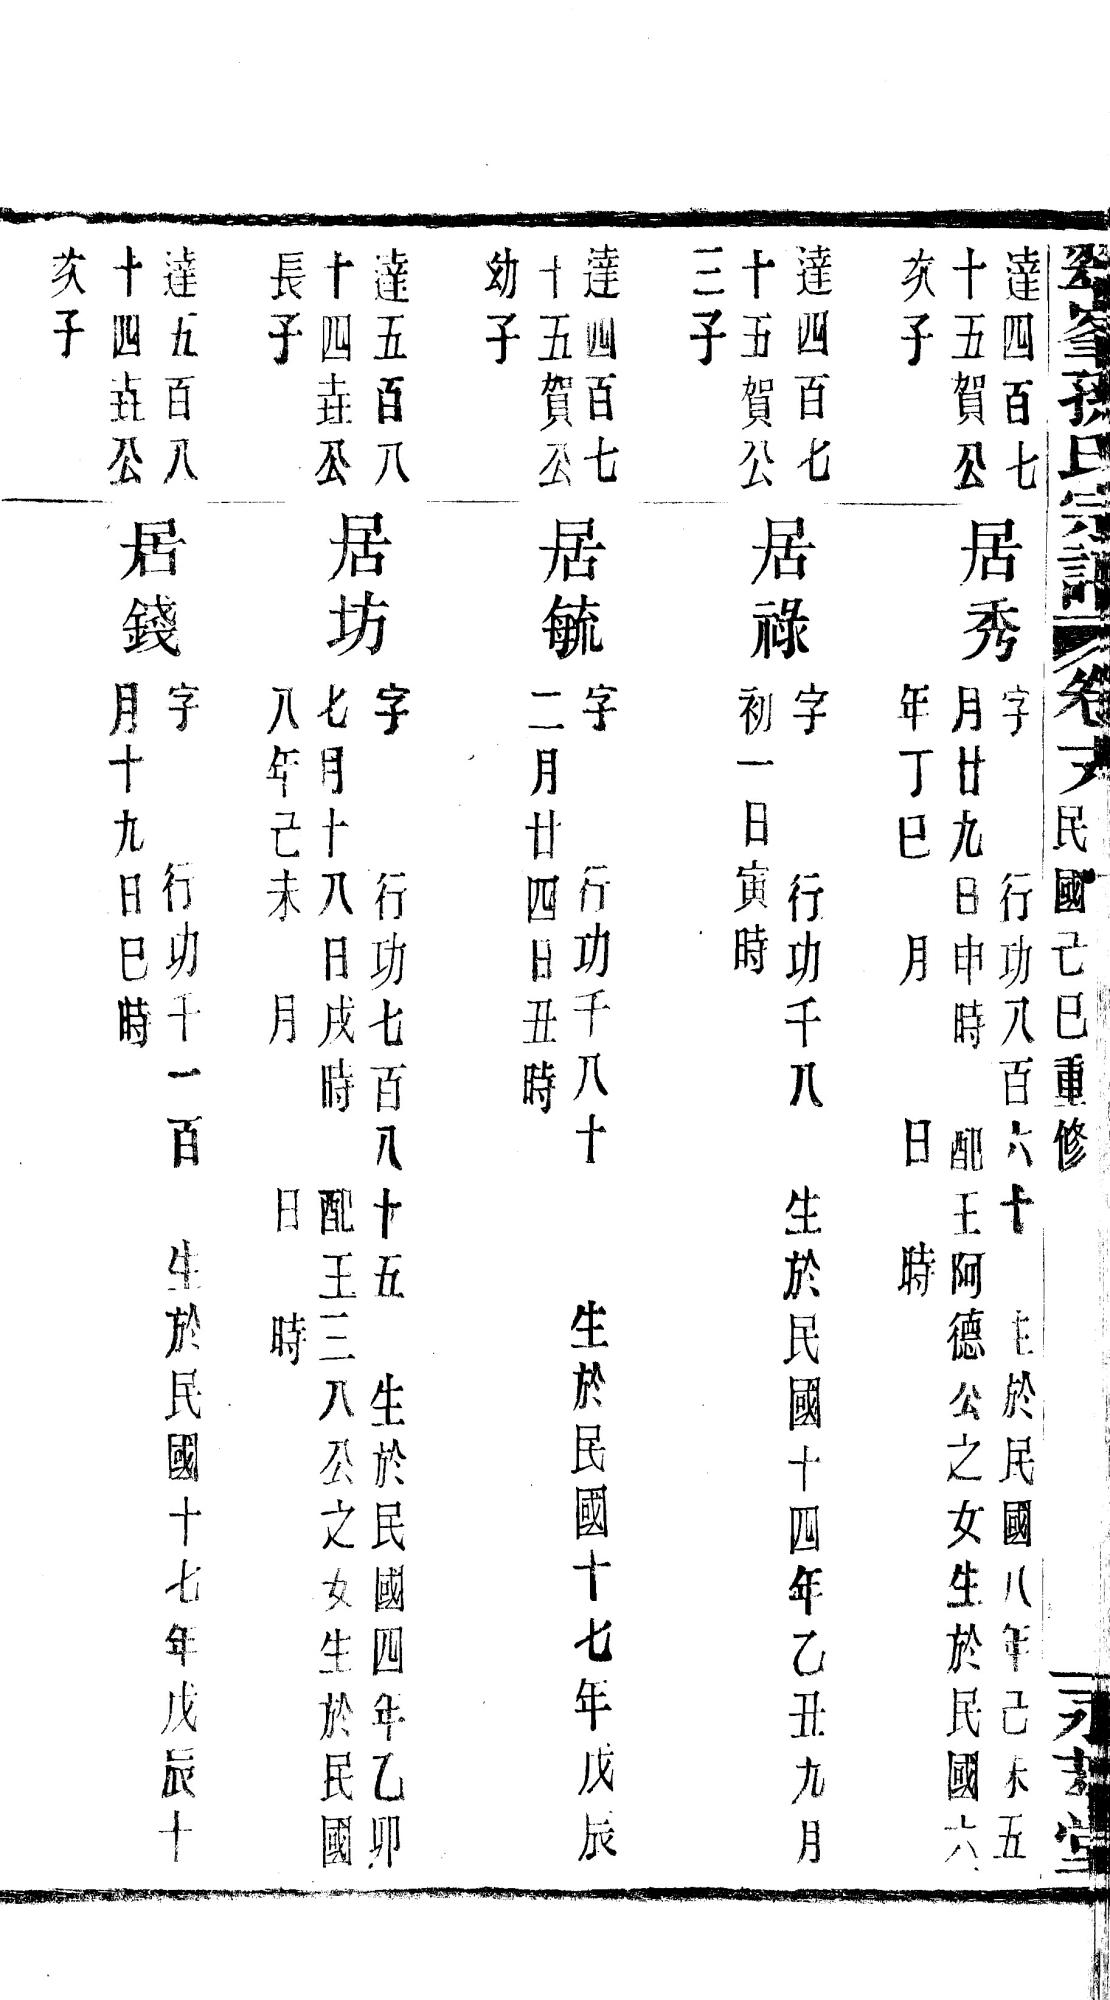 孫氏宗譜 卷 民國己巳重修 堂
達四百七
十五賀公
次子
居秀
字 行功八百六十 生於民國八年己未五
月廿九日申時 配王阿德公之女生於民國六
年丁巳 月 日 時
達四百七
十五賀公
三子
居祿
字 行功千八 生於民國十四年乙丑九月
初一日寅時
達四百七
十五賀公
幼子
居毓
字 行功千八十 生於民國十七年戊辰
二月廿四日丑時
達五百八
十四垚公
長子
居坊
字 行功七百八十五 生於民國四年乙卯
七月十八日戌時 配王三八公之女生於民國
八年己未 月 日 時
達五百八
十四垚公
次子
居錢
字 行功千一百 生於民國十七年戊辰十
月十九日巳時